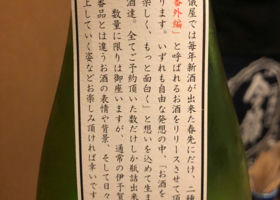 儀屋では毎年新酒が出来た春先にだけ、二種
番外編」と呼ばれるお酒をリリースさせて頂
ります。いずれも自由な発想の中、「お酒を
楽しく、もっと面白く」と想いを込めて生ま
酒達。全てご予約頂いた数だけしか瓶詰出来
数量に限りは御座いますが、通常の伊予賀
番品とは違うお酒の表情や背景、そして日々
上していく姿などお楽しみ頂ければ幸いです